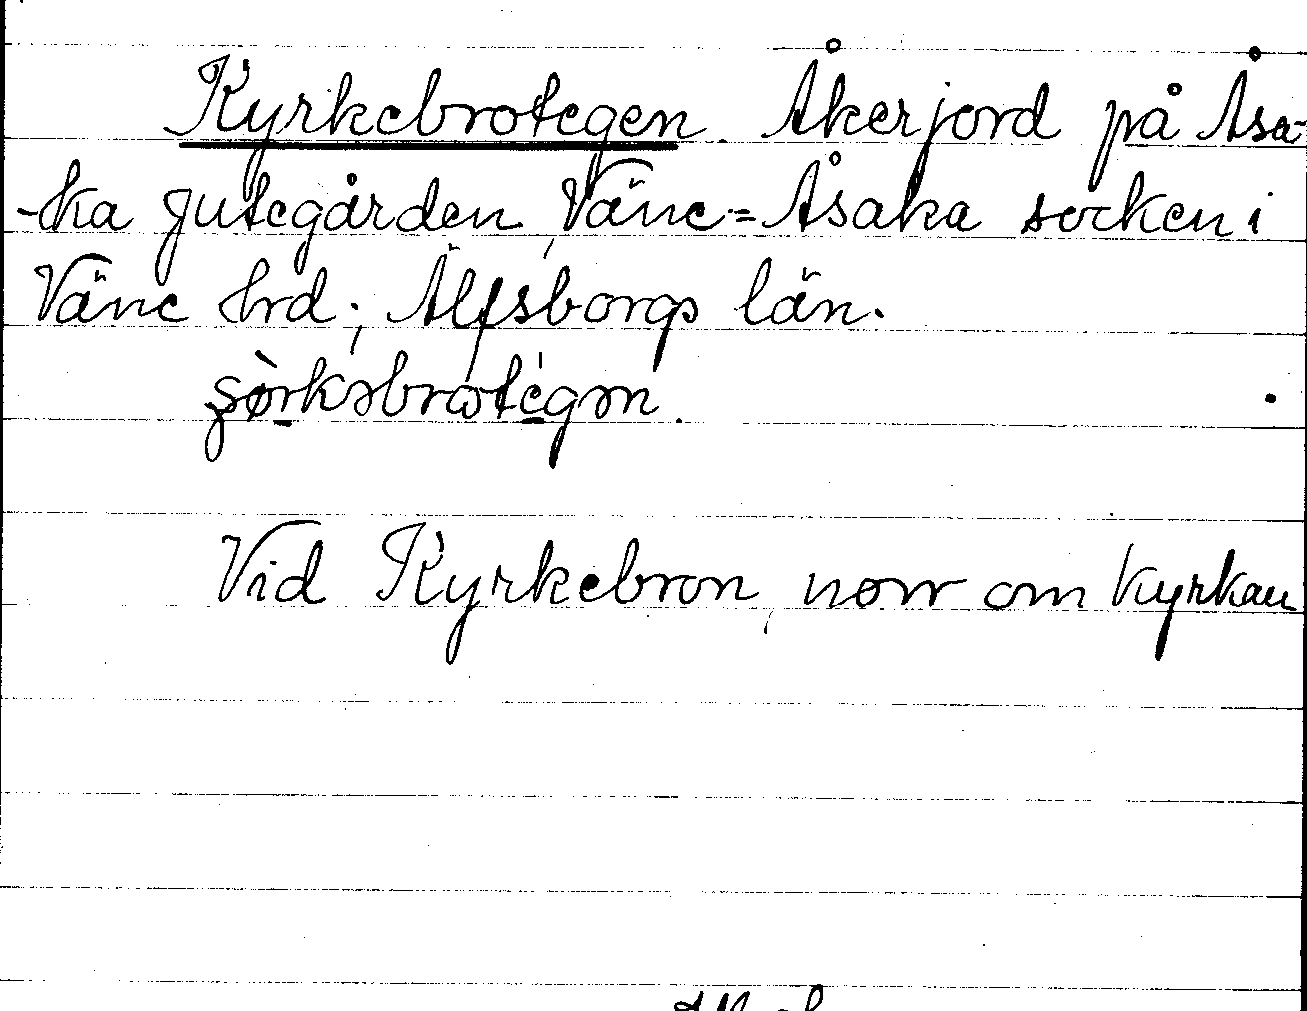 Kyrkebrotegen. Åkerjord på Åsa-
-ka Jutegården, Väne-Åsaka socken i
Väne hrd; Älfsborgs län.
Vid Kyrkebron, norr om kyrkan